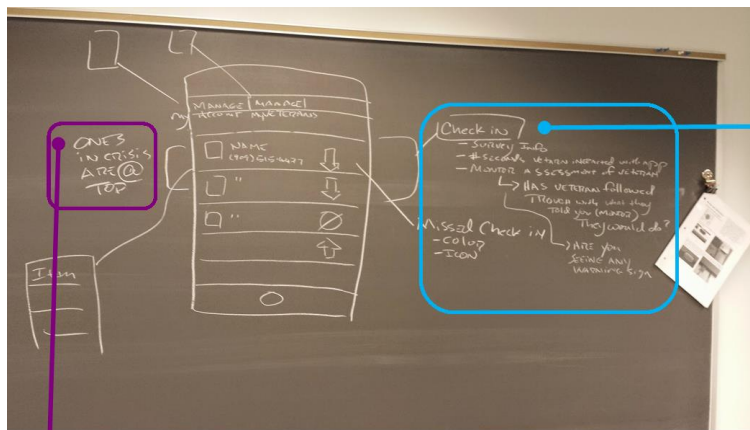 MANAGE | MANAGE
My ACCOUNT MY VETERANS
ONES
IN CRISIS
ARE @
TOP
NAME
"
"
Item
Check in
- Survey Info
- # seconds veteran interacted with app
- MENTOR ASSESSMENT OF VETERAN
HAS VETERAN FOLLOWED
TROUGH with what they
told you (MENTOR)
They would do?
ARE you
SEEING ANY
WARNING SIGN
Missed Check in
- COLOR
- ICON